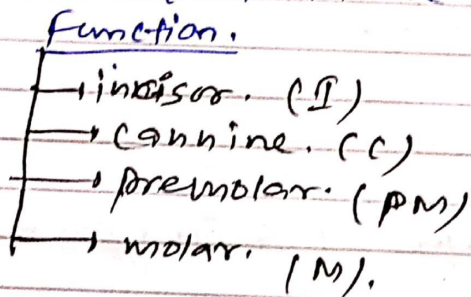 Function.
→ incisor. (I)
→ cannine. (C)
→ premolar. (PM)
→ molar. (M).